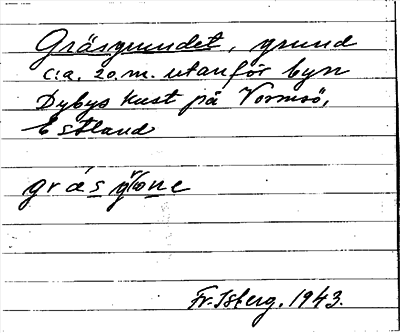 Gräsgrundet, grund
c:a. 20.m. utanför byn
Dybys kust på Vormsö,
Estland
Fr. Isberg. 1943.